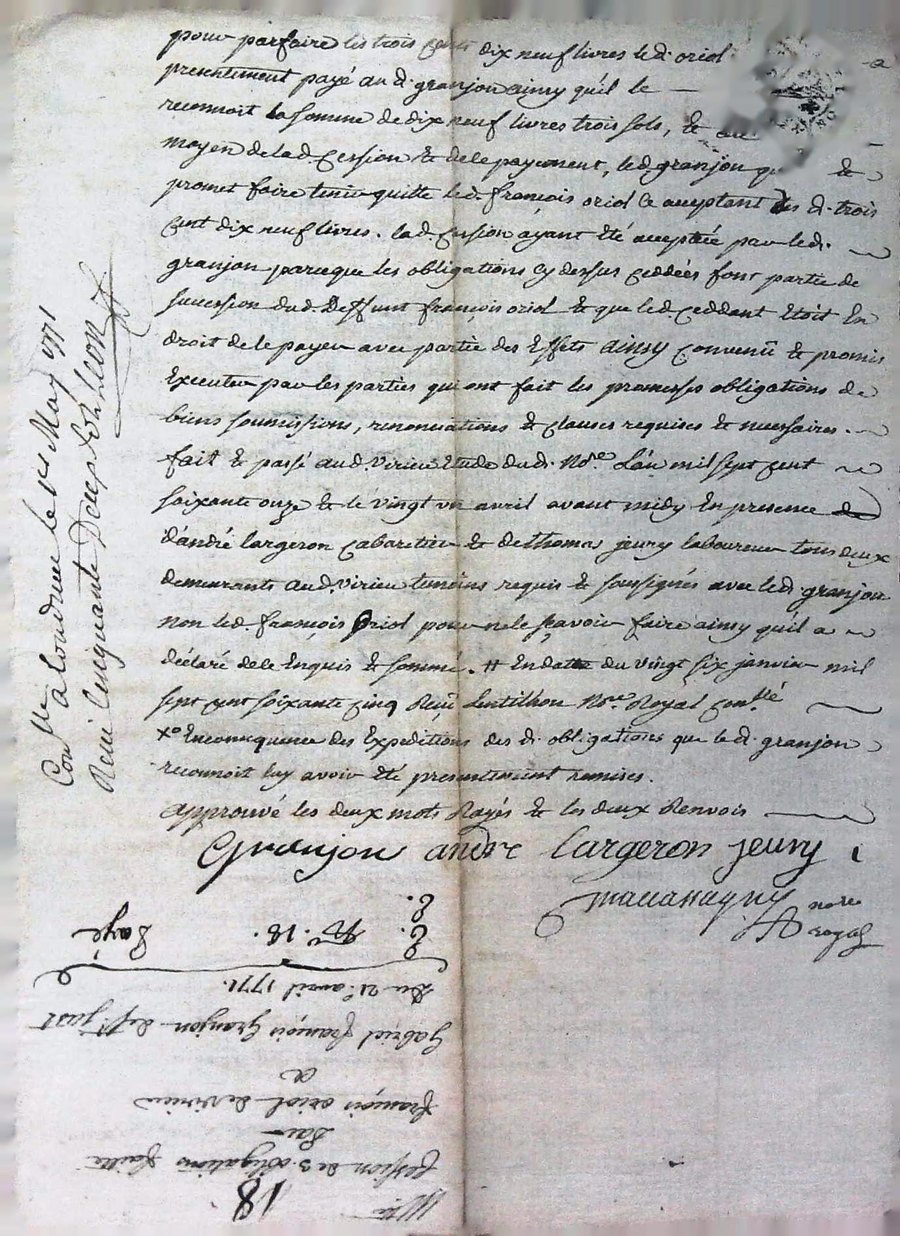 pour parfaire les trois cents dix neuf livres led. oriol a
presentement payé aud. granjon ainsy qu'il le
reconnoit la somme de dix neuf livres trois sols, & au
moyen de lad. cession & de le payement, led. granjon &
promet faire tenir quitte led. françois oriol ce acceptant des d. trois
cent dix neuf livres. lad. cession ayant été acceptée par led.
granjon parceque les obligations cy dessus ceddées font partie de
succession dud. deffunt françois oriol & que led. ceddant Etoit En
droit de le payer avec partie des Effets ainsy convenû & promis
Executer par les parties qui ont fait les promesses obligations de
biens soumissions, renonciations & clauses requises & necessaires.
fait & passé aud. virieu Etude dud. No.re L'an mil sept cent
soixante onze & le vingt un avril avant midy En presence
d'andré largeron cabaretier & de thomas jeury laboureur tous deux
demeurants aud. virieu temoins requis & soussignés avec led. granjon
non led. françois Oriol pour ne le sçavoir faire ainsy qu'il a
déclaré de le Enquis & sommé. # En datte du vingt six janvier mil
sept cent soixante cinq Reçû Lentilhon No.re Royal con.llé
x.o En consequence des Expeditions des d. obligations que le d. granjon
reconnoit luy avoir été presentement remises.
approuvé les deux mots Rayés & les deux Renvois
Granjon andré largeron jeury
no.re
royal
Con.lle a bourdieu le 1er May 1771
Reçu Cinquante
18
Cession de 3 obligations faitte
Par
françois oriol de virieu
a
gabriel françois Granjon de s.t just
Du 21.e avril 1771.
C. N.o 18. Payé
C.